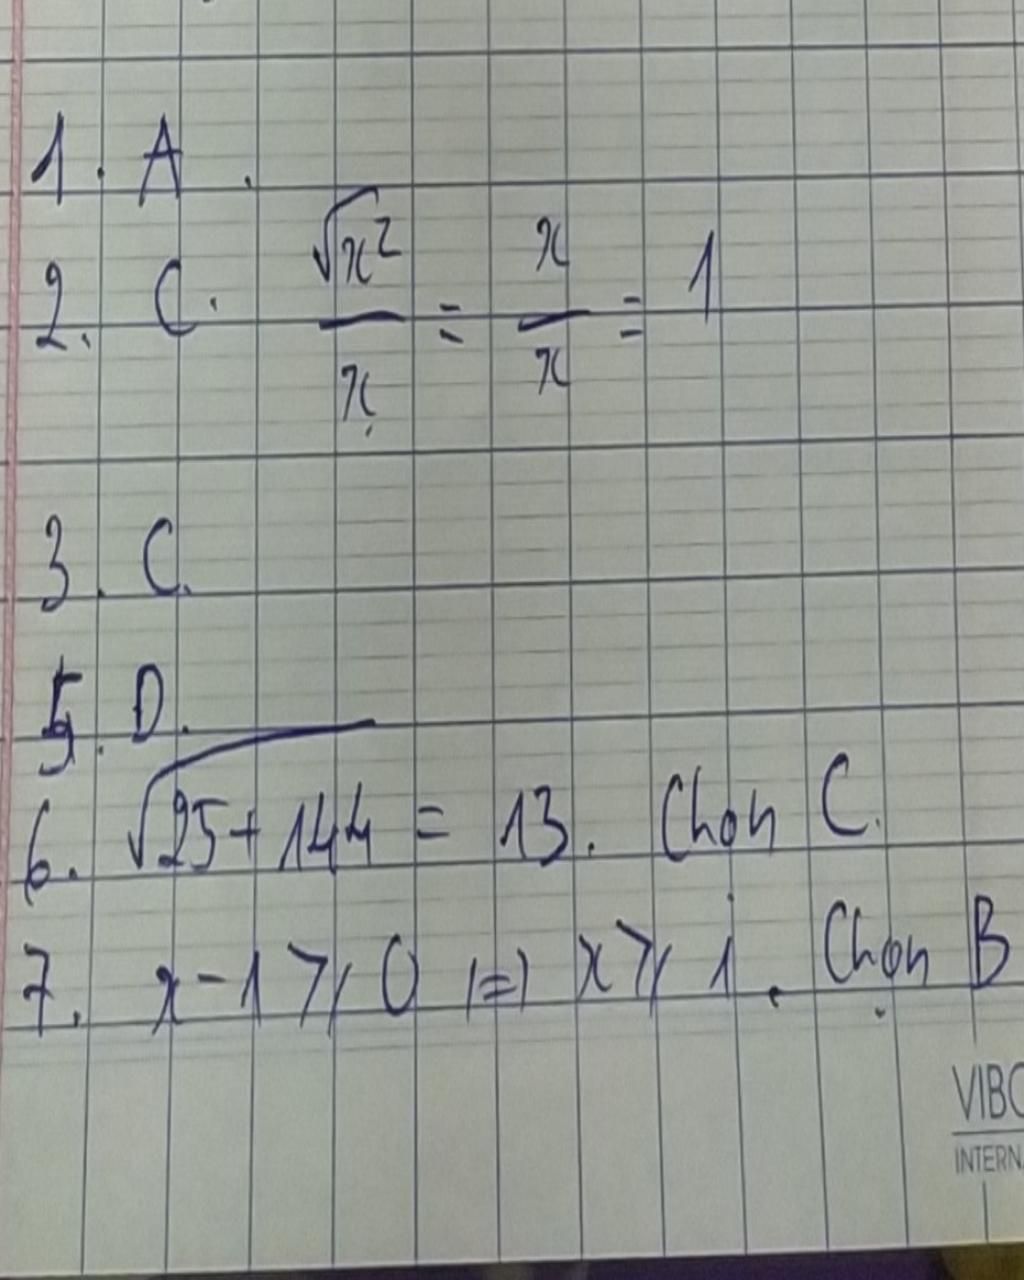 1. A.
2. C. √x² / x = x / x = 1
3. C.
5. D.
6. √25+144 = 13. Chọn C.
7. x-1 ⩾ 0 |=> x ⩾ 1. Chọn B
VIBO
INTERNA